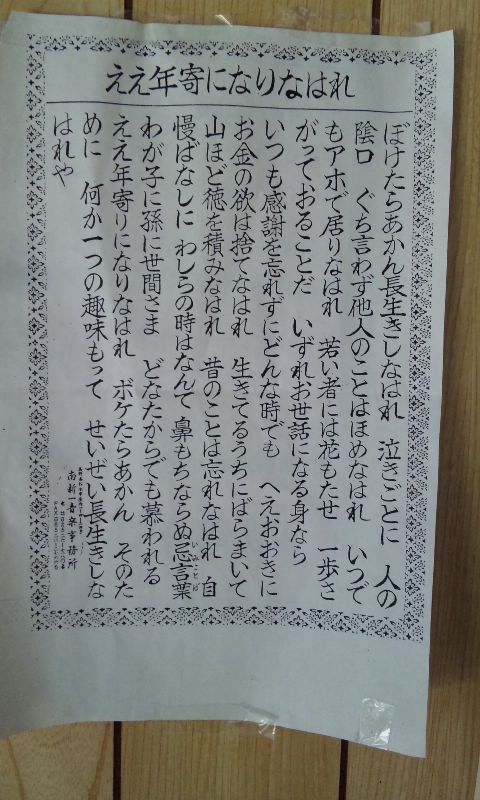 ええ年寄になりなはれ
ぼけたらあかん長生きしなはれ 泣きごとに 人の
陰口 ぐち言わず他人のことはほめなはれ いつで
もアホで居りなはれ 若い者には花もたせ 一歩さ
がっておることだ いずれお世話になる身なら
いつも感謝を忘れずにどんな時でも へえおおきに
お金の欲は捨てなはれ 生きてるうちにばらまいて
山ほど徳を積みなはれ 昔のことは忘れなはれ 自
慢ばなしに わしらの時はなんて 鼻もちならぬ忌言葉
いみことば
わが子に孫に世間さま どなたからでも慕われる
ええ年寄りになりなはれ ボケたらあかん そのた
めに 何か一つの趣味もって せいぜい長生きしな
はれや
南新一音楽事務所